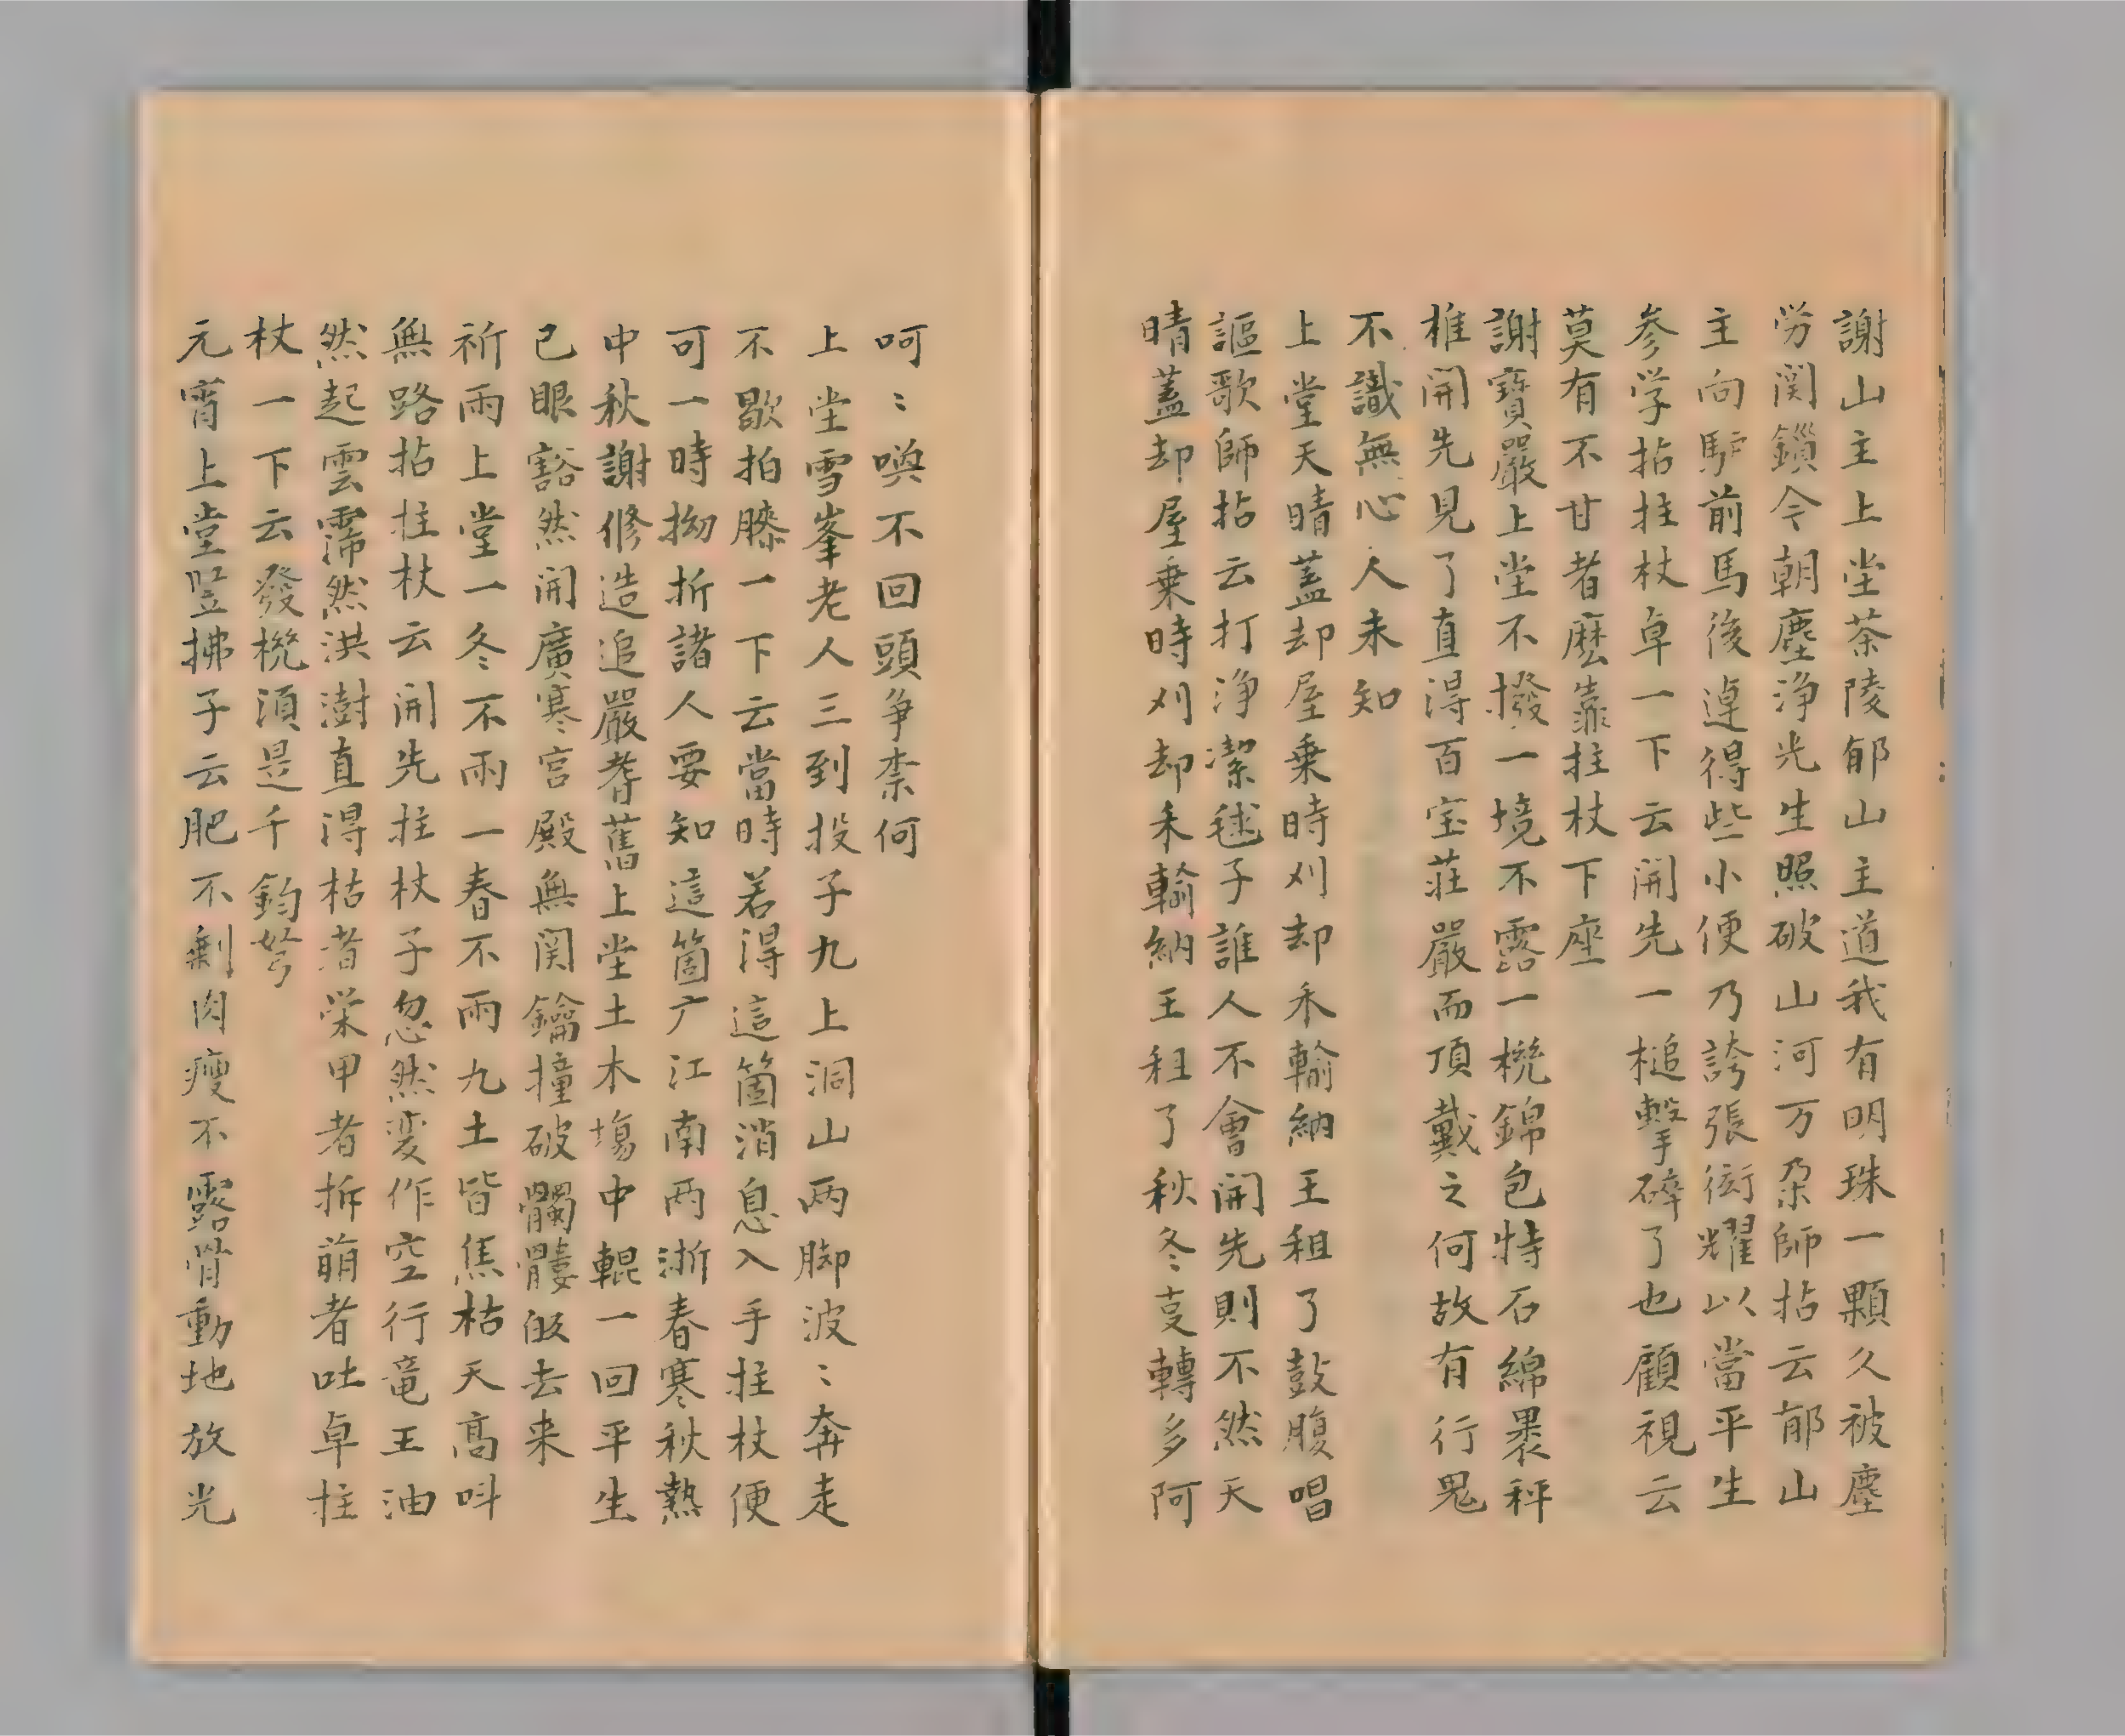 謝山主上堂茶陵郁山主道我有明珠一顆久被塵
労関鎖今朝塵浄光生照破山河万朶師拈云郁山
主向馿前馬後逴得些小便乃誇張衒耀以當平生
参学拈拄杖卓一下云開先一槌擊碎了也顧視云
莫有不甘者麽靠拄杖下座
謝寶嚴上堂不撥一境不露一機錦包特石綿裹秤
椎開先見了直得百宝莊嚴而頂戴之何故有行鬼
不識無心人未知
上堂天晴蓋却屋乗時刈却禾輸納王租了鼓腹唱
謳歌師拈云打浄潔毬子誰人不會開先則不然天
晴蓋却屋乗時刈却禾輸納王租了秋冬叓轉多阿
呵〻喚不回頭争柰何
上堂雪峯老人三到投子九上洞山两脚波〻奔走
不歇拍膝一下云當時若得這箇消息入手拄杖便
可一時拗折諸人要知這箇广江南两浙春寒秋熱
中秋謝修造追嚴耆舊上堂土木塲中輥一回平生
已眼豁然開廣寒宮殿無関鑰撞破髑髏皈去来
祈雨上堂一冬不雨一春不雨九土皆焦枯天高呌
無路拈拄杖云開先拄杖子忽然変作空行竜王油
然起雲霈然洪澍直得枯者栄甲者拆萠者吐卓拄
杖一下云發機須是千鈞弩
元宵上堂竪拂子云肥不剩肉瘦不露骨動地放光